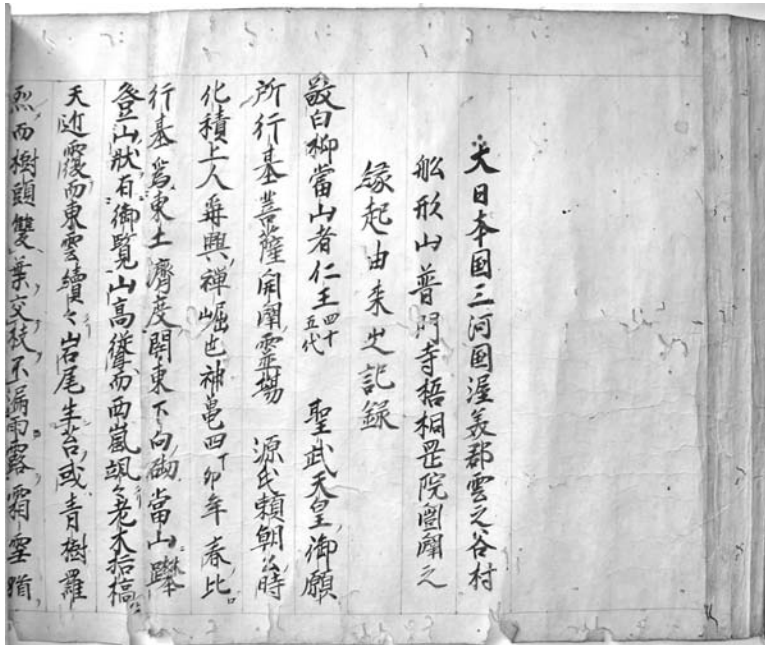 大日本国三河国渥美郡雲之谷村
舩形山普門寺梧桐罡院闔闢之
縁起由来之記録
敬白抑當山者仁王四十五代 聖武天皇御願
所行基菩薩開闢霊場 源氏頼朝公時
化積上人再興禅崛也神亀四丁卯年春比
行基為東土濟度関東下向砌當山躋攀
登山状有御覧山高聳而西嵐颯々老木枯槁
天近覆而東雲續々岩尾生苔或青樹羅
烈而樹頭雙葉交枝不漏雨露霜雪